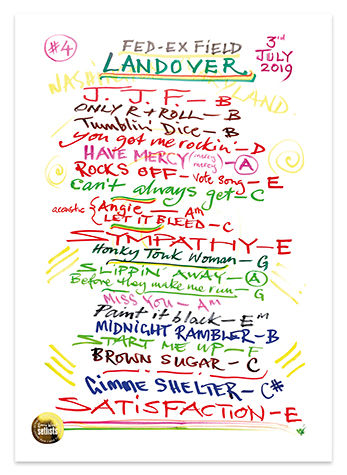 #4
FED-EX FIELD
3rd
JULY
2019
LANDOVER
WASHINGTON MARYLAND
J.J.F. — B
ONLY R+ROLL — B
Tumblin' Dice — B
You got me rockin' — D
HAVE MERCY (mercy mercy) — A
ROCKS OFF — Vote song — E
Can't always get — C
acoustic { Angie — Am
LET IT BLEED — C
SYMPATHY — E
Honky Tonk Woman — G
SLIPPIN' AWAY — A
Before they make me run — G
MISS YOU — Am
Paint it black — Em
MIDNIGHT RAMBLER — B
START ME UP — F
BROWN SUGAR — C
Gimme SHELTER — C#
SATISFACTION — E
setlists